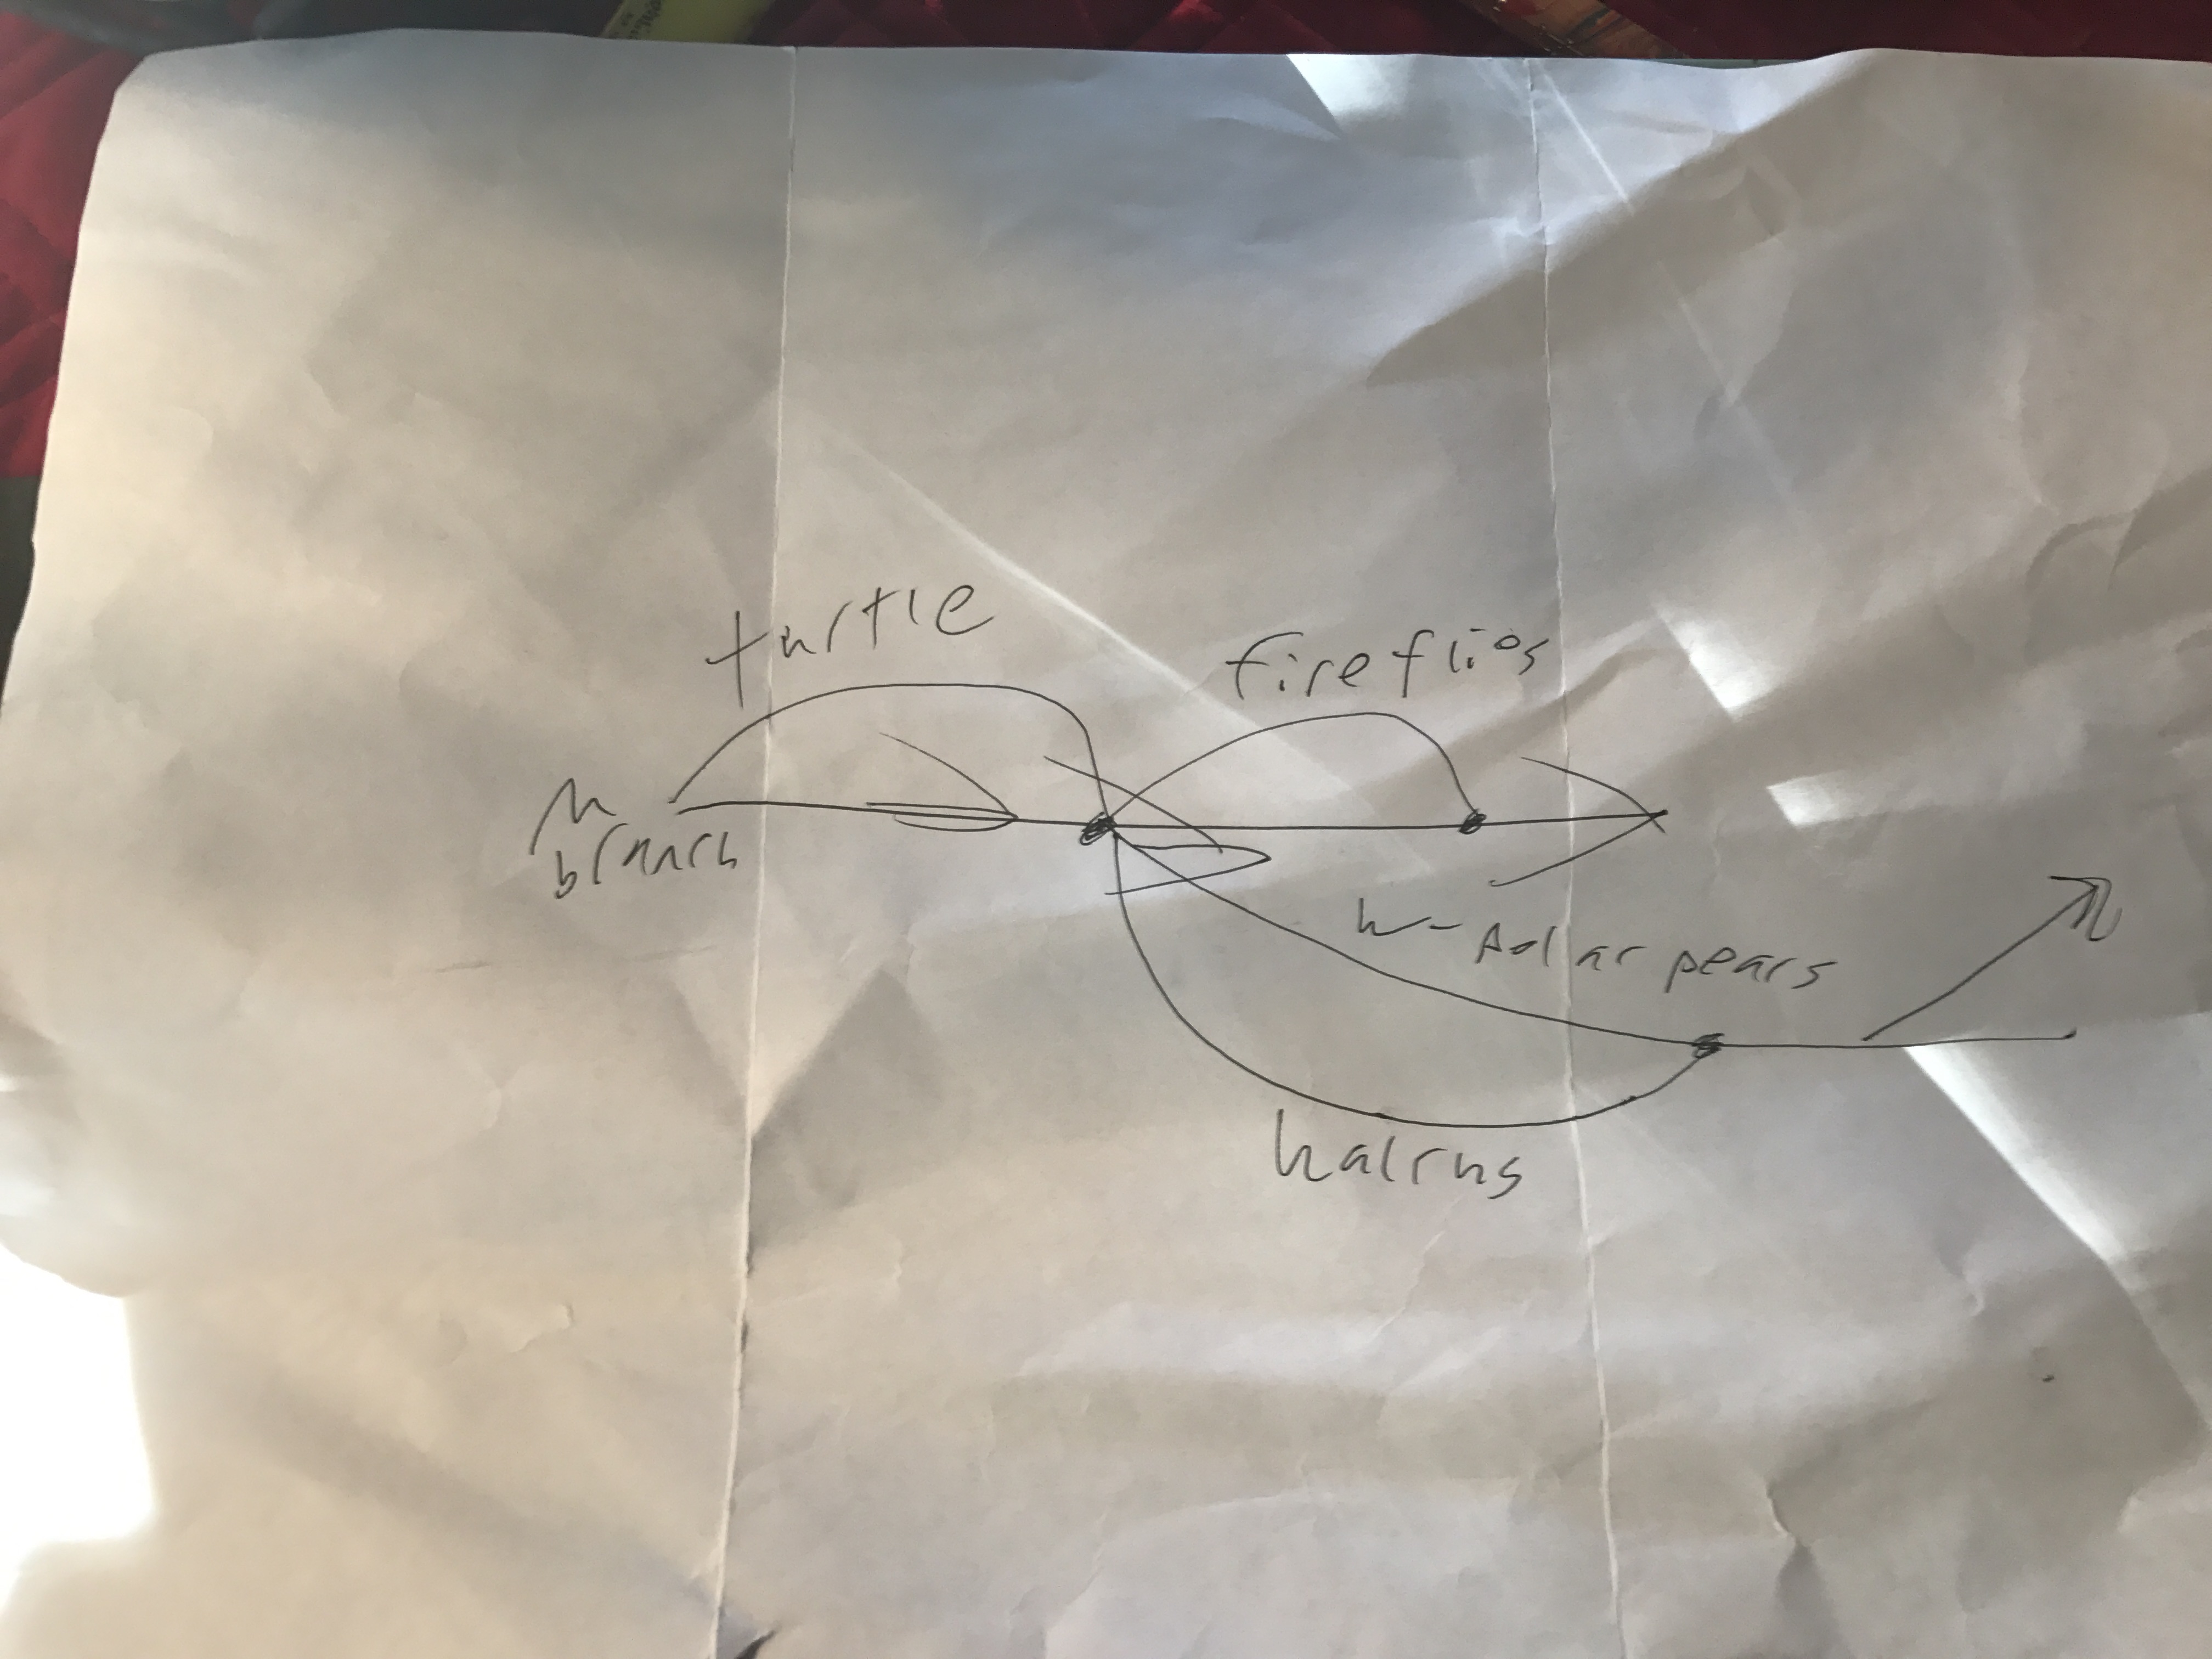 turtle
fireflies
M
branch
w- polar pears
walrus